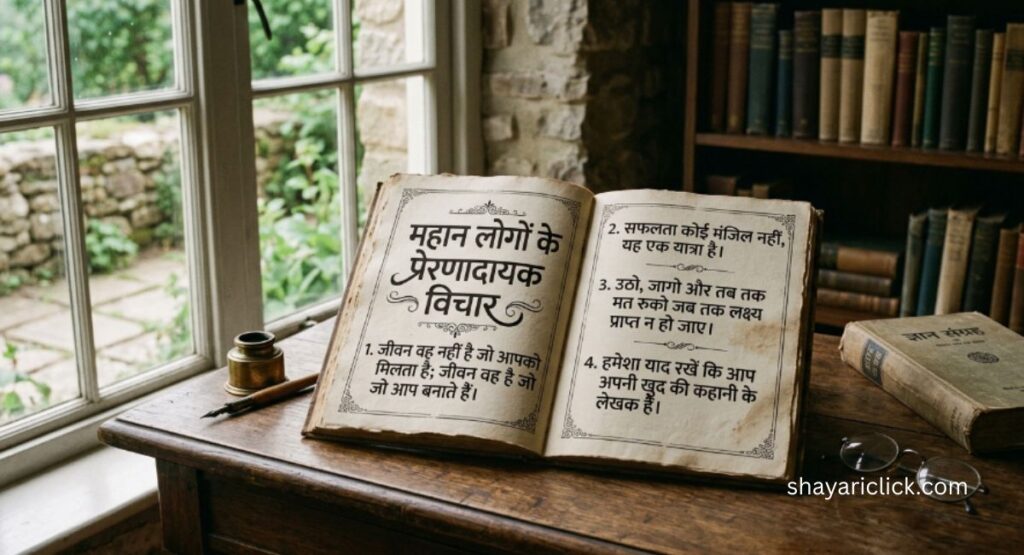 महान लोगों के
प्रेरणादायक
विचार
1. जीवन वह नहीं है जो आपको
मिलता है; जीवन वह है जो
जो आप बनाते हैं।
2. सफलता कोई मंजिल नहीं,
यह एक यात्रा है।
3. उठो, जागो और तब तक
मत रुको जब तक लक्ष्य
प्राप्त न हो जाए।
4. हमेशा याद रखें कि आप
अपनी खुद की कहानी के
लेखक हैं।
ज्ञान संग्रह
shayariclick.com